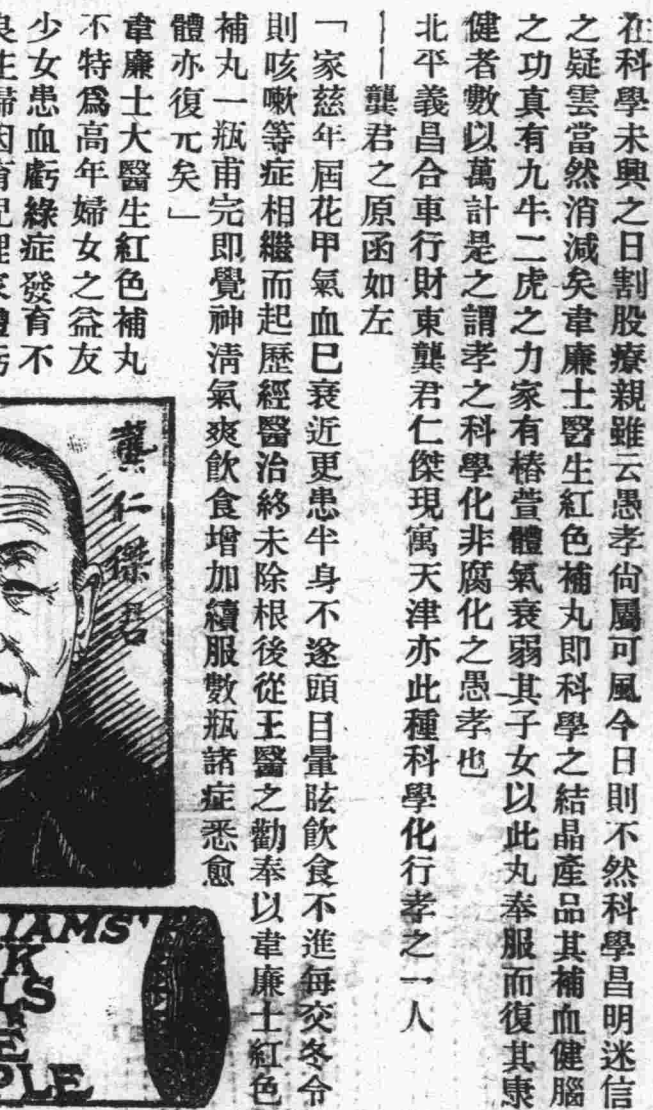 在科學未興之日割股療親雖云愚孝尙屬可風今日則不然科學昌明迷信
之疑雲當然消滅矣韋廉士醫生紅色補丸即科學之結晶產品其補血健腦
之功真有九牛二虎之力家有椿萱體氣衰弱其子女以此丸奉服而復其康
健者數以萬計是之謂孝之科學化非腐化之愚孝也
北平義昌合車行財東龔君仁傑現寓天津亦此種科學化行孝之一人
——龔君之原函如左
「家慈年屆花甲氣血已衰近更患半身不遂頭目暈眩飲食不進每交冬令
則咳嗽等症相繼而起歷經醫治終未除根後從王醫之勸奉以韋廉士紅色
補丸一瓶甫完即覺神淸氣爽飲食增加續服數瓶諸症悉愈
體亦復元矣」
韋廉士大醫生紅色補丸
不特爲高年婦女之益友
少女患血虧綠症發育不
龔仁傑君
IAMS'
K
LS
E
PLE